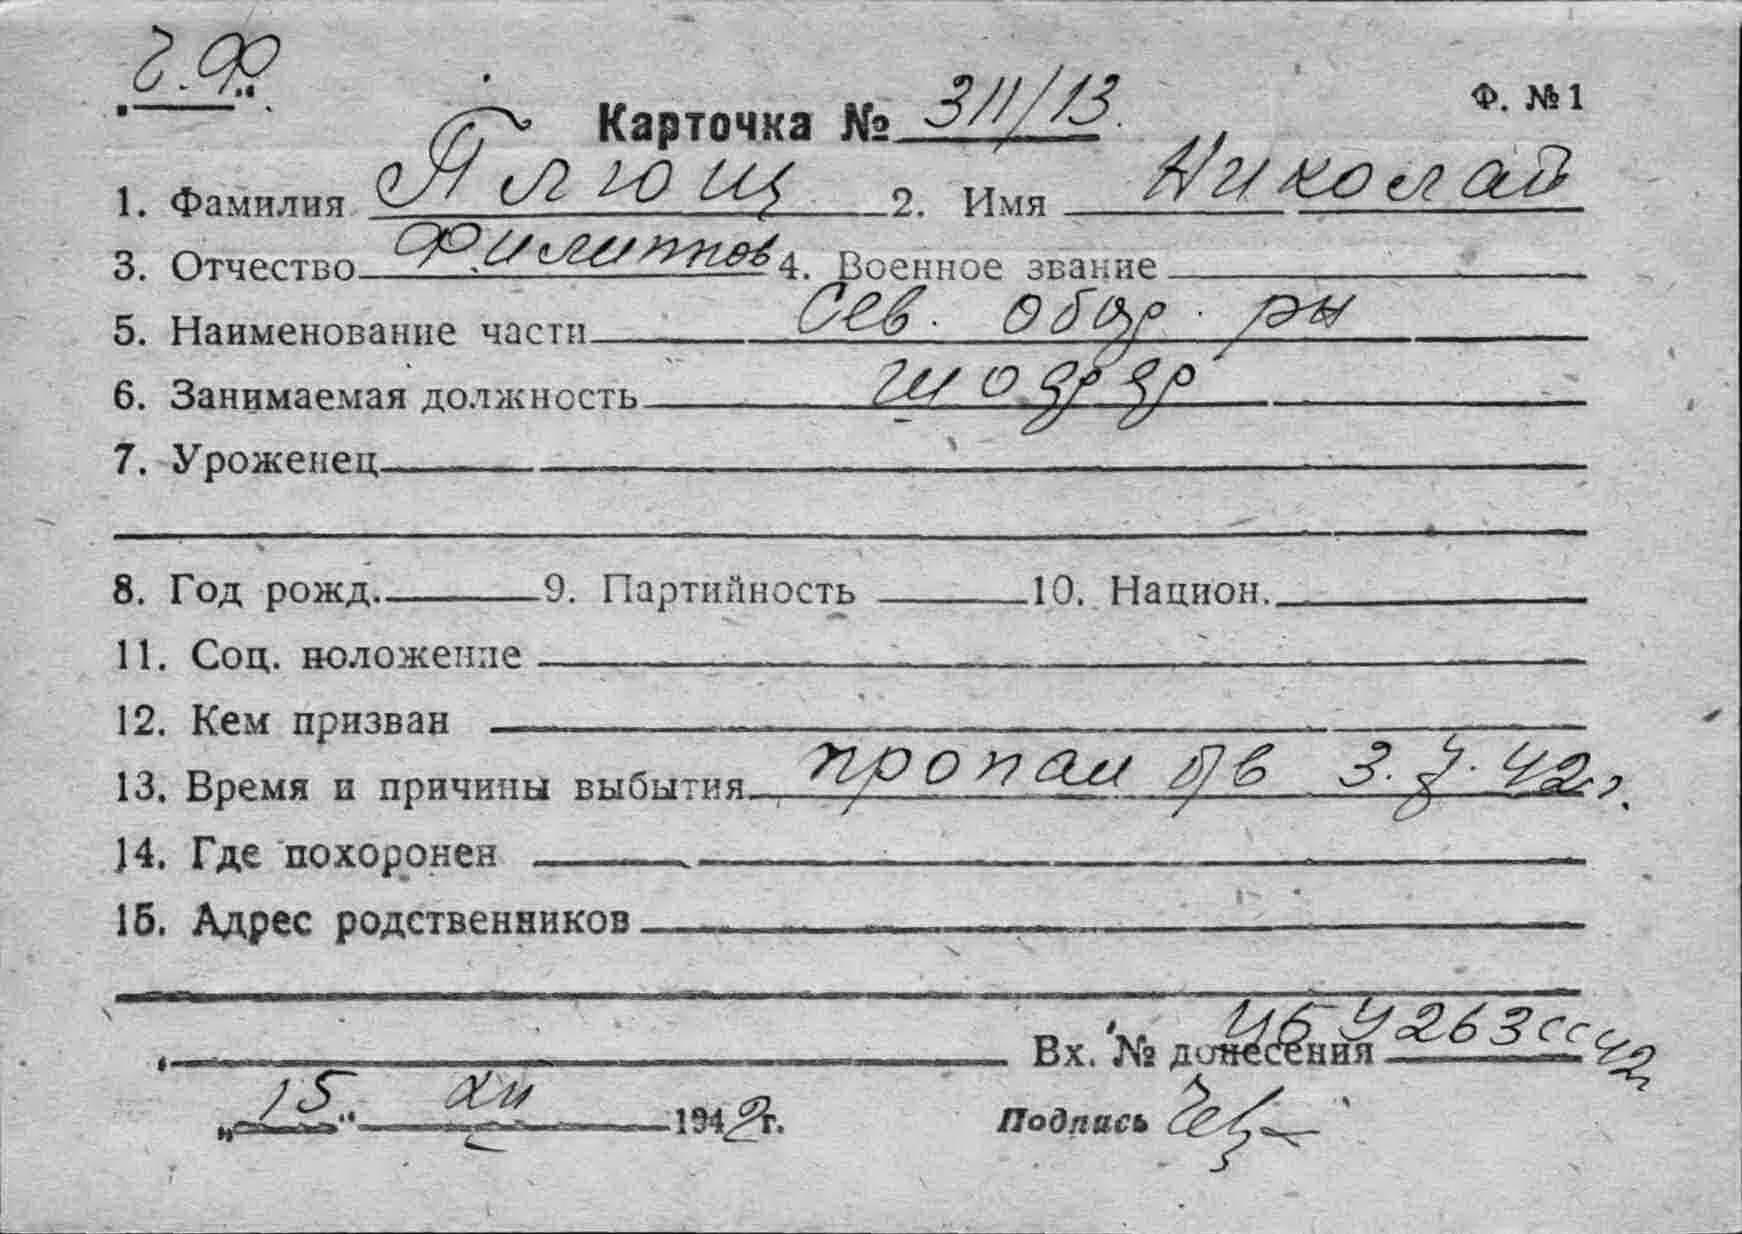 Ч.Ф.
Карточка № 311/13. Ф. № 1
1. Фамилия Плющ 2. Имя Николай
3. Отчество Филиппов 4. Военное звание
5. Наименование части Сев. обор. рн
6. Занимаемая должность
7. Уроженец
8. Год рожд. 9. Партийность 10. Национ.
11. Соц. положение
12. Кем призван
13. Время и причины выбытия пропал б/в 3.7.42 г.
14. Где похоронен
15. Адрес родственников
Вх. № донесения
„15“ XII 1942 г. Подпись